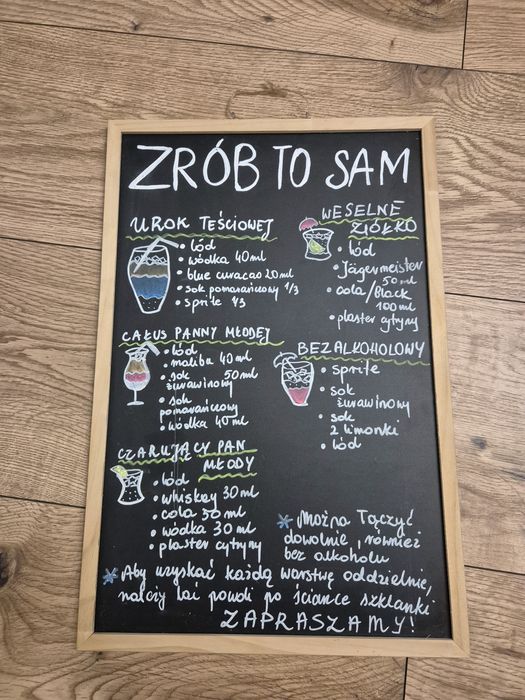 ZRÓB TO SAM
UROK TEŚCIOWEJ
• lód
• wódka 40ml
• blue curacao 20ml
• sok pomarańczowy 1/3
• sprite 1/3
CAŁUS PANNY MŁODEJ
• lód
• malibu 40 ml
• sok 50 ml
żurawinowy
• sok
pomarańczowy
• wódka 40 ml
CZARUJĄCY PAN
MŁODY
• lód
• whiskey 30 ml
• cola 50 ml
• wódka 30 ml
• plaster cytryny
WESELNE
ZIÓŁKO
• lód
• Jägermeister
50 ml
• cola/Black
100 ml
• plaster cytryny
BEZALKOHOLOWY
• sprite
• sok
żurawinowy
• sok
z limonki
• lód
* Można łączyć
dowolnie, również
bez alkoholu
* Aby uzyskać każdą warstwę oddzielnie,
należy lać powoli po ściance szklanki
ZAPRASZAMY!